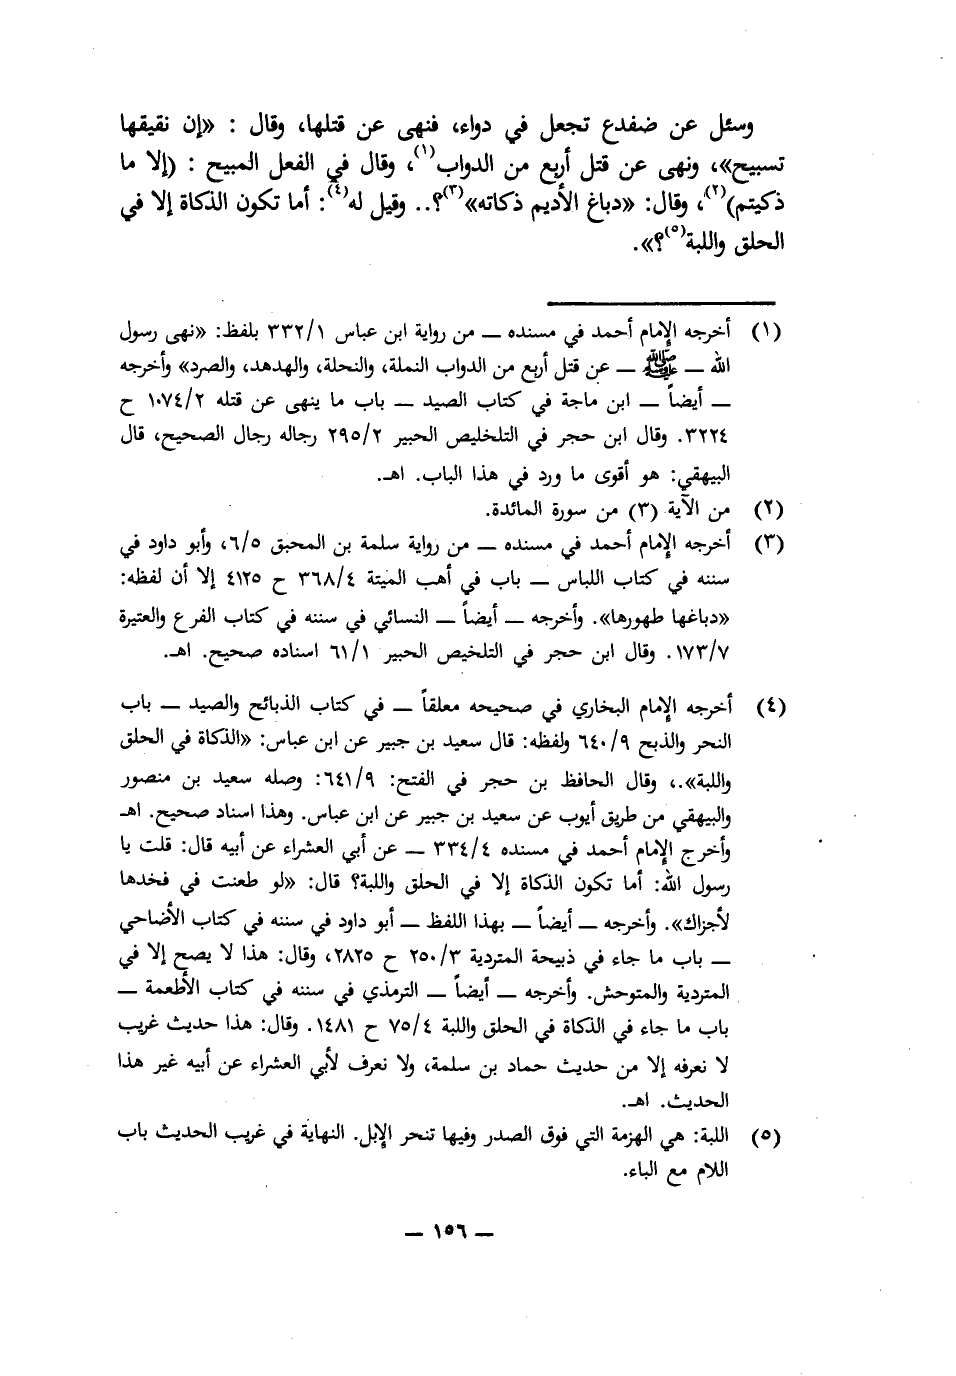 وسئل عن ضفدع تجعل في دواء، فنهى عن قتلها، وقال : «إن نقيقها
تسبيح»، ونهى عن قتل أربع من الدواب(١)، وقال في الفعل المبيح : (إلا ما
ذكيتم)(٢)، وقال: «دباغ الأديم ذكاته»(٣)؟.. وقيل له(٤): أما تكون الذكاة إلا في
الحلق واللبة(٥)؟».
(١) أخرجه الإمام أحمد في مسنده ــ من رواية ابن عباس ٣٣٢/١ بلفظ: «نهى رسول
الله ــ ﷺ ــ عن قتل أربع من الدواب النملة، والنحلة، والهدهد، والصرد» وأخرجه
ــ أيضاً ــ ابن ماجة في كتاب الصيد ــ باب ما ينهى عن قتله ١٠٧٤/٢ ح
٣٢٢٤. وقال ابن حجر في التلخليص الحبير ٢٩٥/٢ رجاله رجال الصحيح، قال
البيهقي: هو أقوى ما ورد في هذا الباب. اهـ.
(٢) من الآية (٣) من سورة المائدة.
(٣) أخرجه الإمام أحمد في مسنده ــ من رواية سلمة بن المحبق ٦/٥، وأبو داود في
سننه في كتاب اللباس ــ باب في أهب الميتة ٣٦٨/٤ ح ٤١٢٥ إلا أن لفظه:
«دباغها طهورها». وأخرجه ــ أيضاً ــ النسائي في سننه في كتاب الفرع والعتيرة
١٧٣/٧. وقال ابن حجر في التلخيص الحبير ٦١/١ اسناده صحيح. اهـ.
(٤) أخرجه الإمام البخاري في صحيحه معلقاً ــ في كتاب الذبائح والصيد ــ باب
النحر والذبح ٦٤٠/٩ ولفظه: قال سعيد بن جبير عن ابن عباس: «الذكاة في الحلق
واللبة».، وقال الحافظ بن حجر في الفتح: ٦٤١/٩: وصله سعيد بن منصور
والبيهقي من طريق أيوب عن سعيد بن جبير عن ابن عباس. وهذا اسناد صحيح. اهـ
وأخرج الإمام أحمد في مسنده ٣٣٤/٤ ــ عن أبي العشراء عن أبيه قال: قلت يا
رسول الله: أما تكون الذكاة إلا في الحلق واللبة؟ قال: «لو طعنت في فخدها
لأجزاك». وأخرجه ــ أيضاً ــ بهذا اللفظ ــ أبو داود في سننه في كتاب الأضاحي
ــ باب ما جاء في ذبيحة المتردية ٢٥٠/٣ ح ٢٨٢٥، وقال: هذا لا يصح إلا في
المتردية والمتوحش. وأخرجه ــ أيضاً ــ الترمذي في سننه في كتاب الأطعمة ــ
باب ما جاء في الذكاة في الحلق واللبة ٧٥/٤ ح ١٤٨١. وقال: هذا حديث غريب
لا نعرفه إلا من حديث حماد بن سلمة، ولا نعرف لأبي العشراء عن أبيه غير هذا
الحديث. اهـ.
(٥) اللبة: هي الهزمة التي فوق الصدر وفيها تنحر الإبل. النهاية في غريب الحديث باب
اللام مع الباء.
ــ ١٥٦ ــ